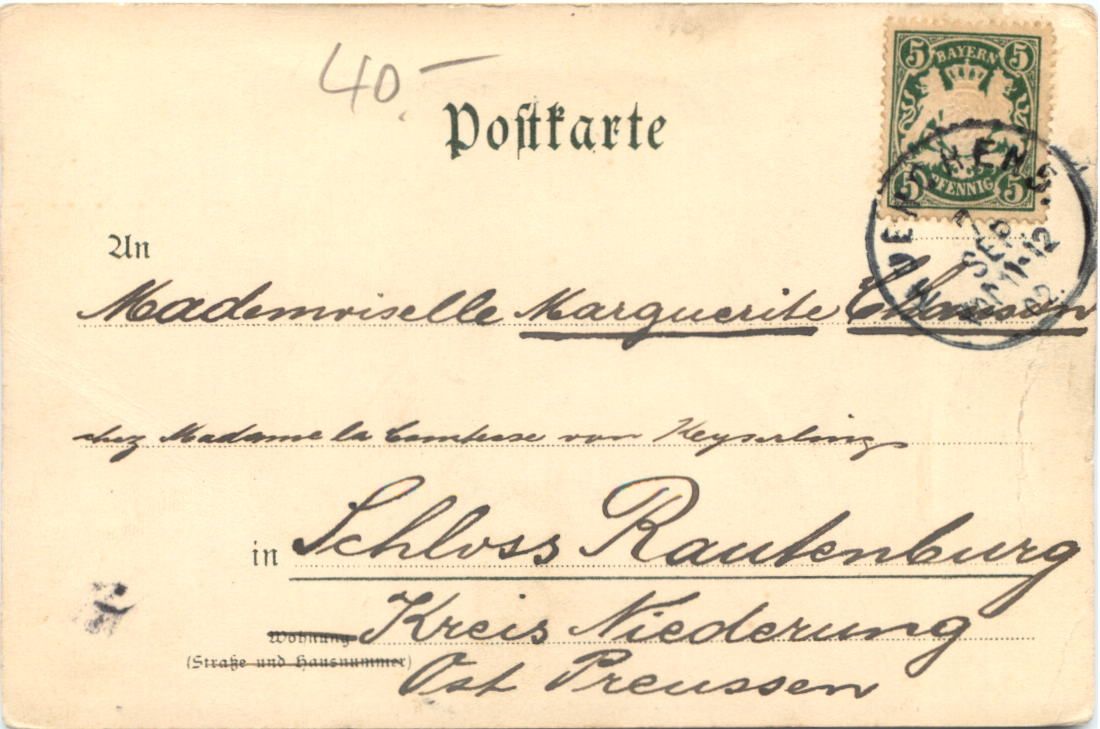 40.-
Postkarte
5 BAYERN 5
5 PFENNIG 5
MUENCHEN 3.
7 SEP.
11-12
02
An
Mademoiselle Marguerite
chez Madame la Comtesse von Keyserling
in Schloss Rautenburg
Wohnung Kreis Niederung
(Straße und Hausnummer)
Ost Preussen